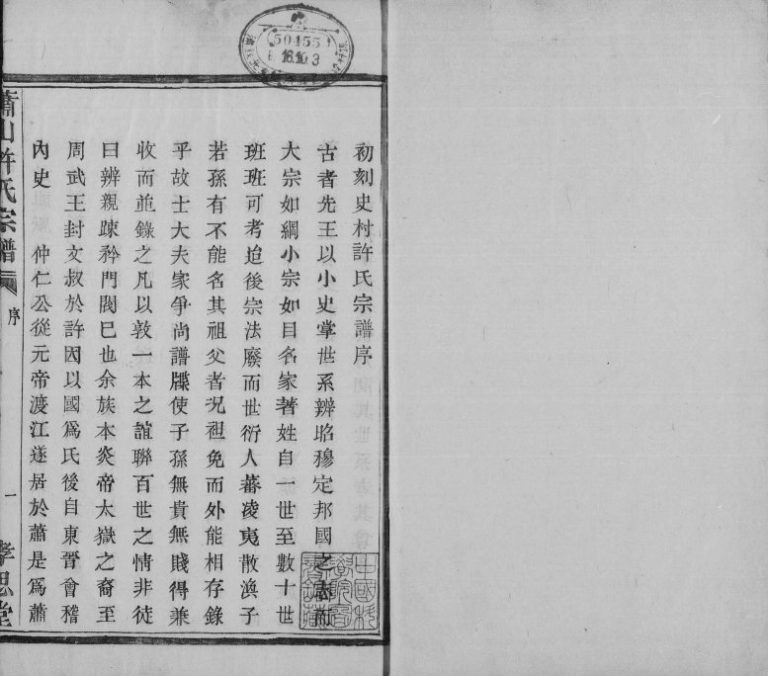 初刻史村許氏宗譜序
古者先王以小史掌世系辨昭穆定邦國之志而
大宗如綱小宗如目名家著姓自一世至數十世
班班可考迨後宗法廢而世衍人蕃凌夷散渙子
若孫有不能名其祖父者况祖免而外能相存錄
乎故士大夫家爭尚譜牒使子孫無貴無賤得兼
收而並錄之凡以敦一本之誼聯百世之情非徒
曰辨親踈矜門閥已也余族本炎帝太嶽之裔至
周武王封文叔於許因以國為氏後自東晉會稽
內史 仲仁公從元帝渡江遂居於蕭是為蕭
蕭山許氏宗譜
序
一
孝思堂
50455